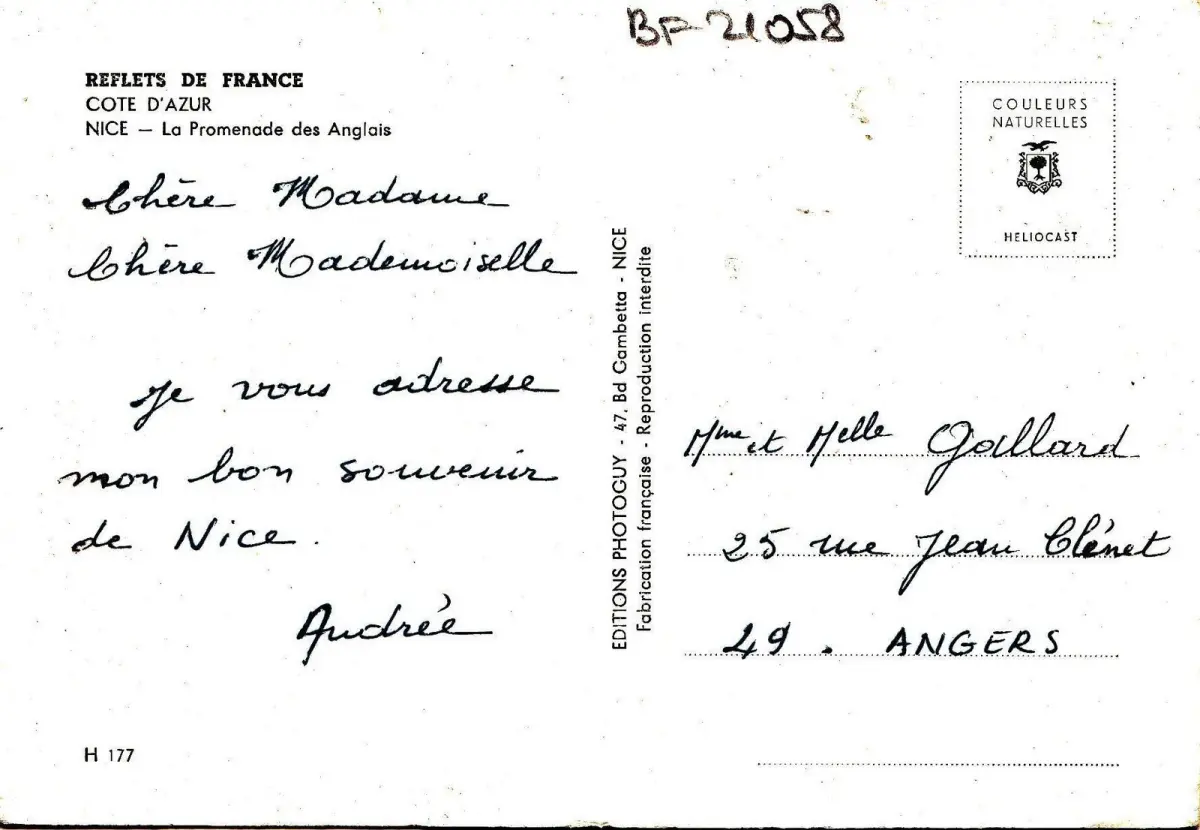 BF-21058
REFLETS DE FRANCE
COTE D'AZUR
NICE — La Promenade des Anglais
Chère Madame
Chère Mademoiselle
Je vous adresse
mon bon souvenir
de Nice.
Andrée
H 177
EDITIONS PHOTOGUY - 47, Bd Gambetta - NICE
Fabrication française - Reproduction interdite
COULEURS
NATURELLES
HELIOCAST
Mme et Melle Gallard
25 rue Jean Clénet
49. ANGERS